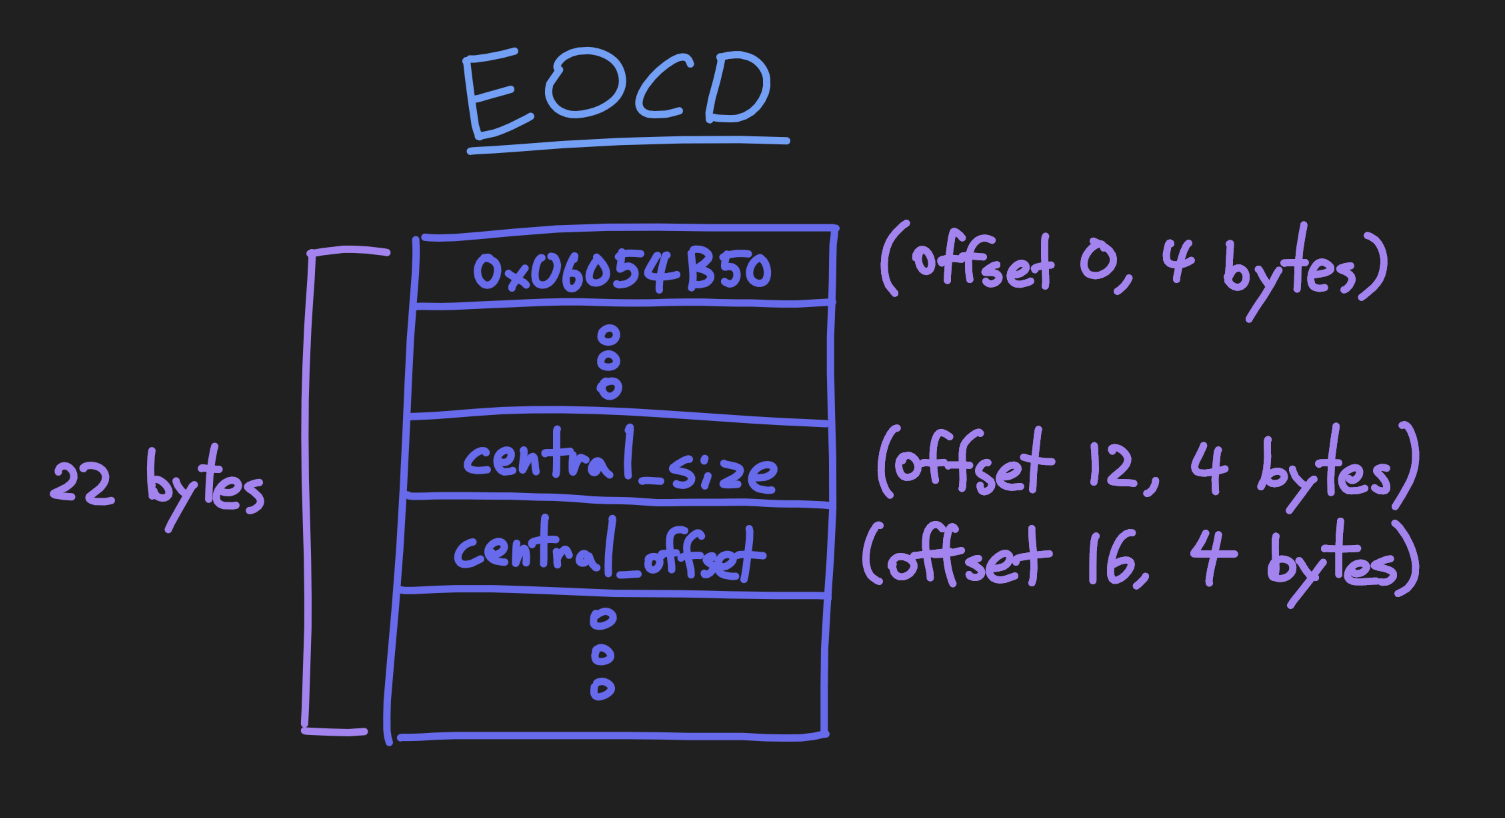 EOCD
0x06054B50 (offset 0, 4 bytes)
central_size (offset 12, 4 bytes)
22 bytes
central_offset (offset 16, 4 bytes)